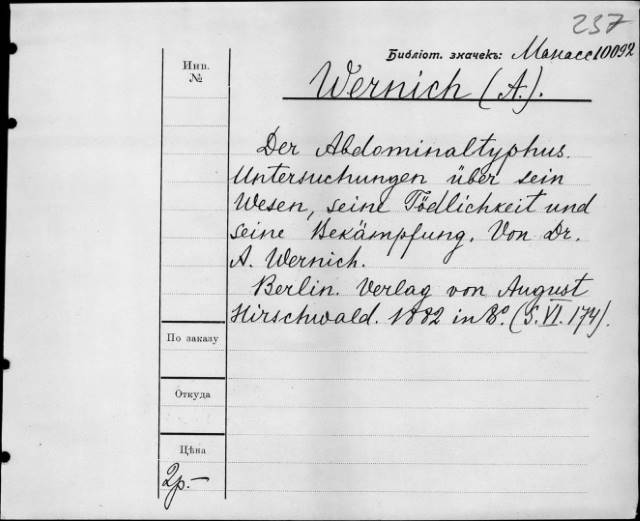 237
Библіот. значекъ: Манасс 10092
Инв.
№
Wernich (A.).
Der Abdominaltyphus.
Untersuchungen über sein
Wesen, seine Tödlichkeit und
seine Bekämpfung. Von Dr.
A. Wernich.
Berlin. Verlag von August
Hirschwald. 1882 in 8º. (S. VI. 174).
По заказу
Откуда
Цѣна
2р.–